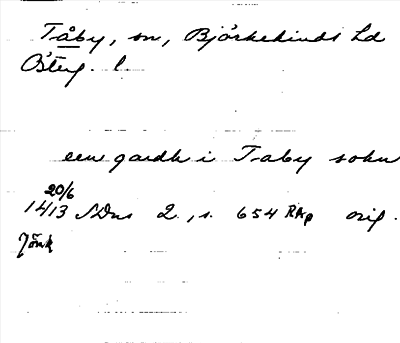 Tåby, sn, Björkekinds hd
Österg. l.
een gardh i Taby sokn
20/6
1413 SDns 2, s. 654 RAp orig.
Jönk